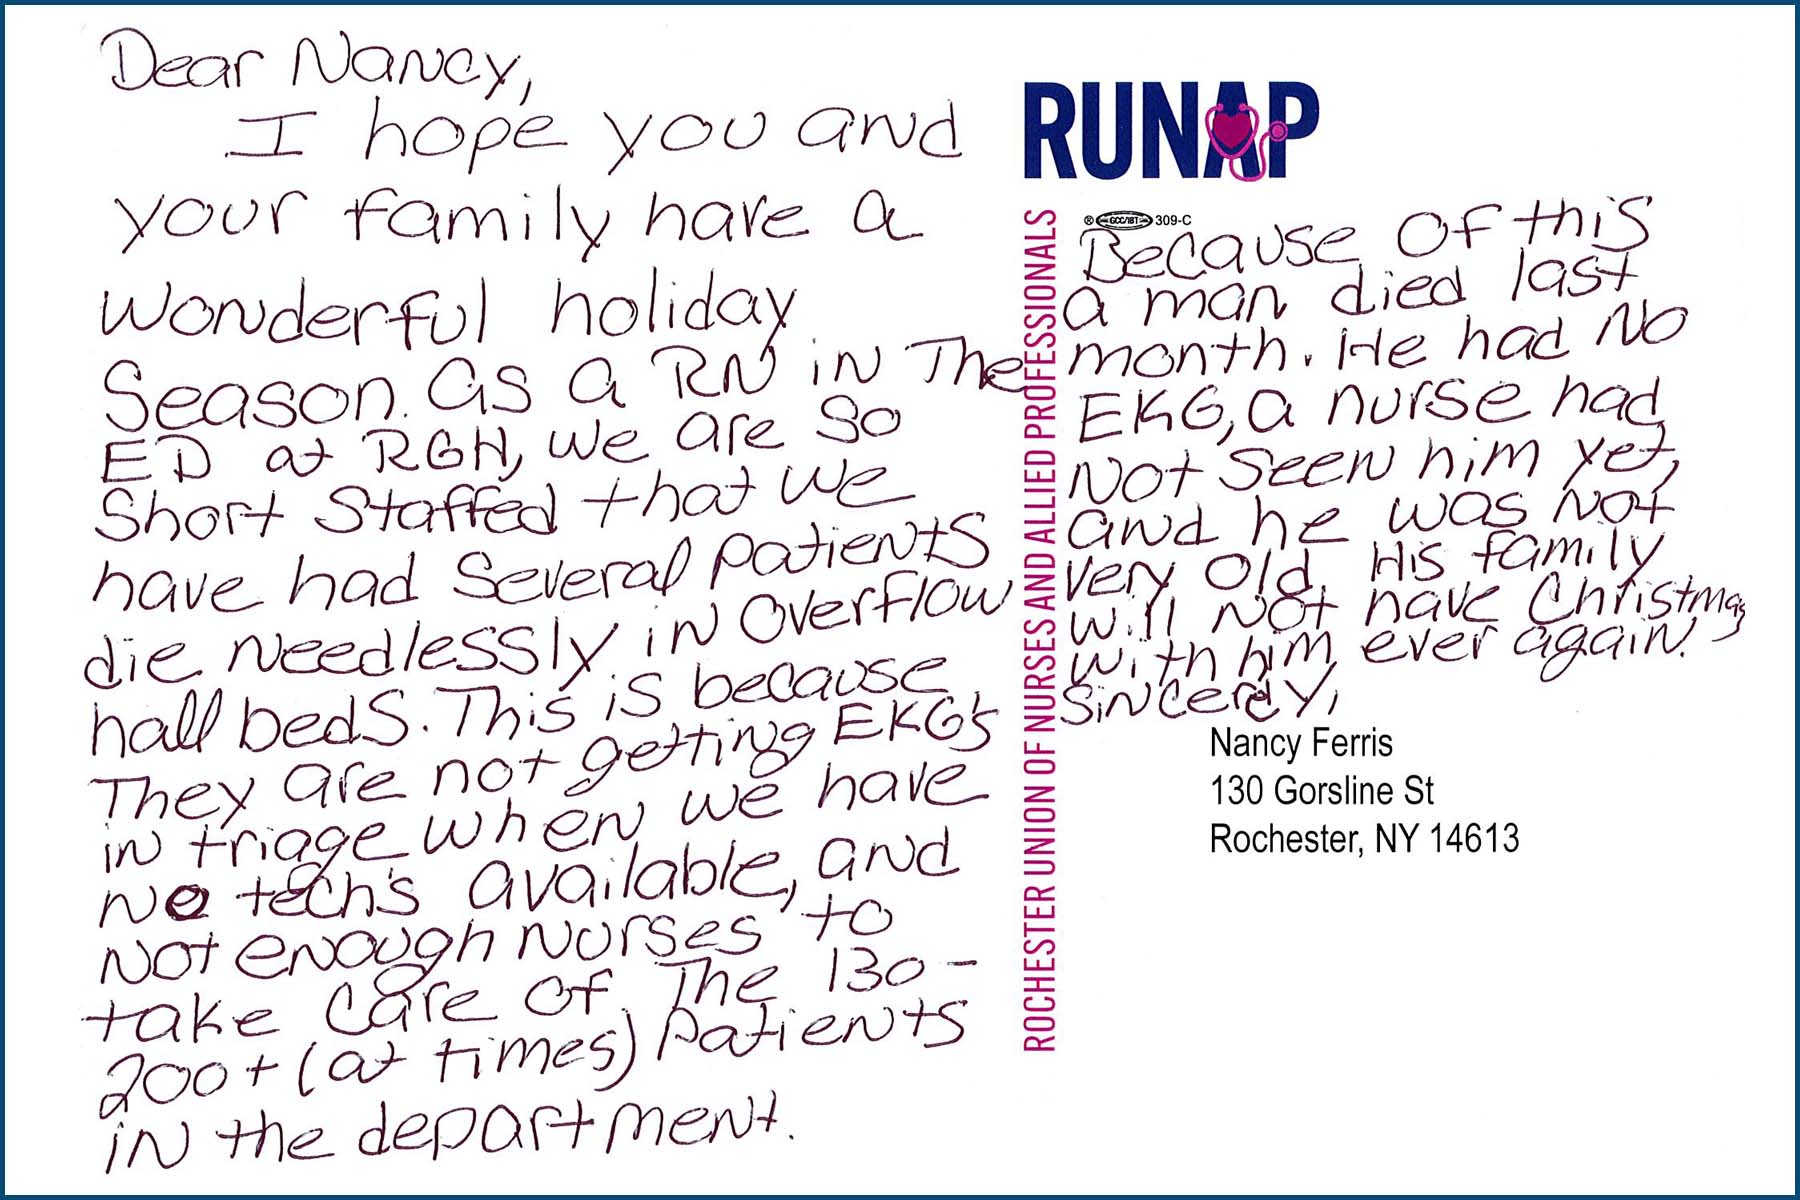 Dear Nancy,
I hope you and
your family have a
wonderful holiday
Season. As a RN in The
ED at RGH, we are so
Short Staffed that we
have had Several patients
die needlessly in overflow
hall beds. This is because
They are not getting EKG's
in triage when we have
no tech's available, and
not enough nurses to
take care of The 130-
200+ (at times) patients
in the department.
RUNAP
ROCHESTER UNION OF NURSES AND ALLIED PROFESSIONALS
® GCC/IBT 309-C
Because of this
a man died last
month. He had no
EKG, a nurse had
not seen him yet,
and he was not
very old. His family
will not have Christmas
with him ever again.
Sincerely,
Nancy Ferris
130 Gorsline St
Rochester, NY 14613